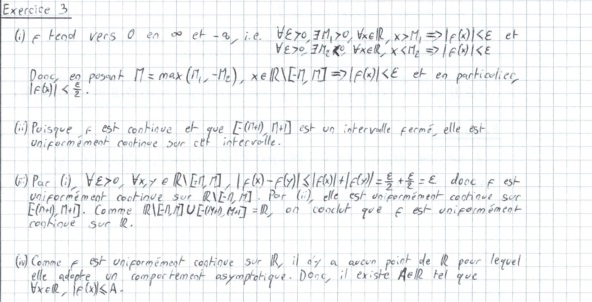 Exercice 3
(i) f tend vers 0 en ∞ et -∞, i.e. ∀ε>0, ∃M₁>0, ∀x∈ℝ, x>M₁ => |f(x)|<ε et
∀ε>0, ∃M₂<0, ∀x∈ℝ, x<M₂ => |f(x)|<ε
Donc, en posant M = max(M₁, -M₂), x∈ℝ\[-M, M] => |f(x)|<ε et en particulier,
|f(x)| < ε/2.
(ii) Puisque f est continue et que [-(M+1), M+1] est un intervalle fermé, elle est
uniformément continue sur cet intervalle.
(iii) Par (i), ∀ε>0, ∀x,y ∈ ℝ\[-M, M], |f(x)-f(y)| ≤ |f(x)|+|f(y)| = ε/2 + ε/2 = ε donc f est
uniformément continue sur ℝ\[-M, M]. Par (ii), elle est uniformément continue sur
[-(M+1), M+1]. Comme ℝ\[-M, M] ∪ [-(M+1), M+1] = ℝ, on conclut que f est uniformément
continue sur ℝ.
(iv) Comme f est uniformément continue sur ℝ, il n'y a aucun point de ℝ pour lequel
elle adopte un comportement asymptotique. Donc, il existe A∈ℝ tel que
∀x∈ℝ, |f(x)|≤A.